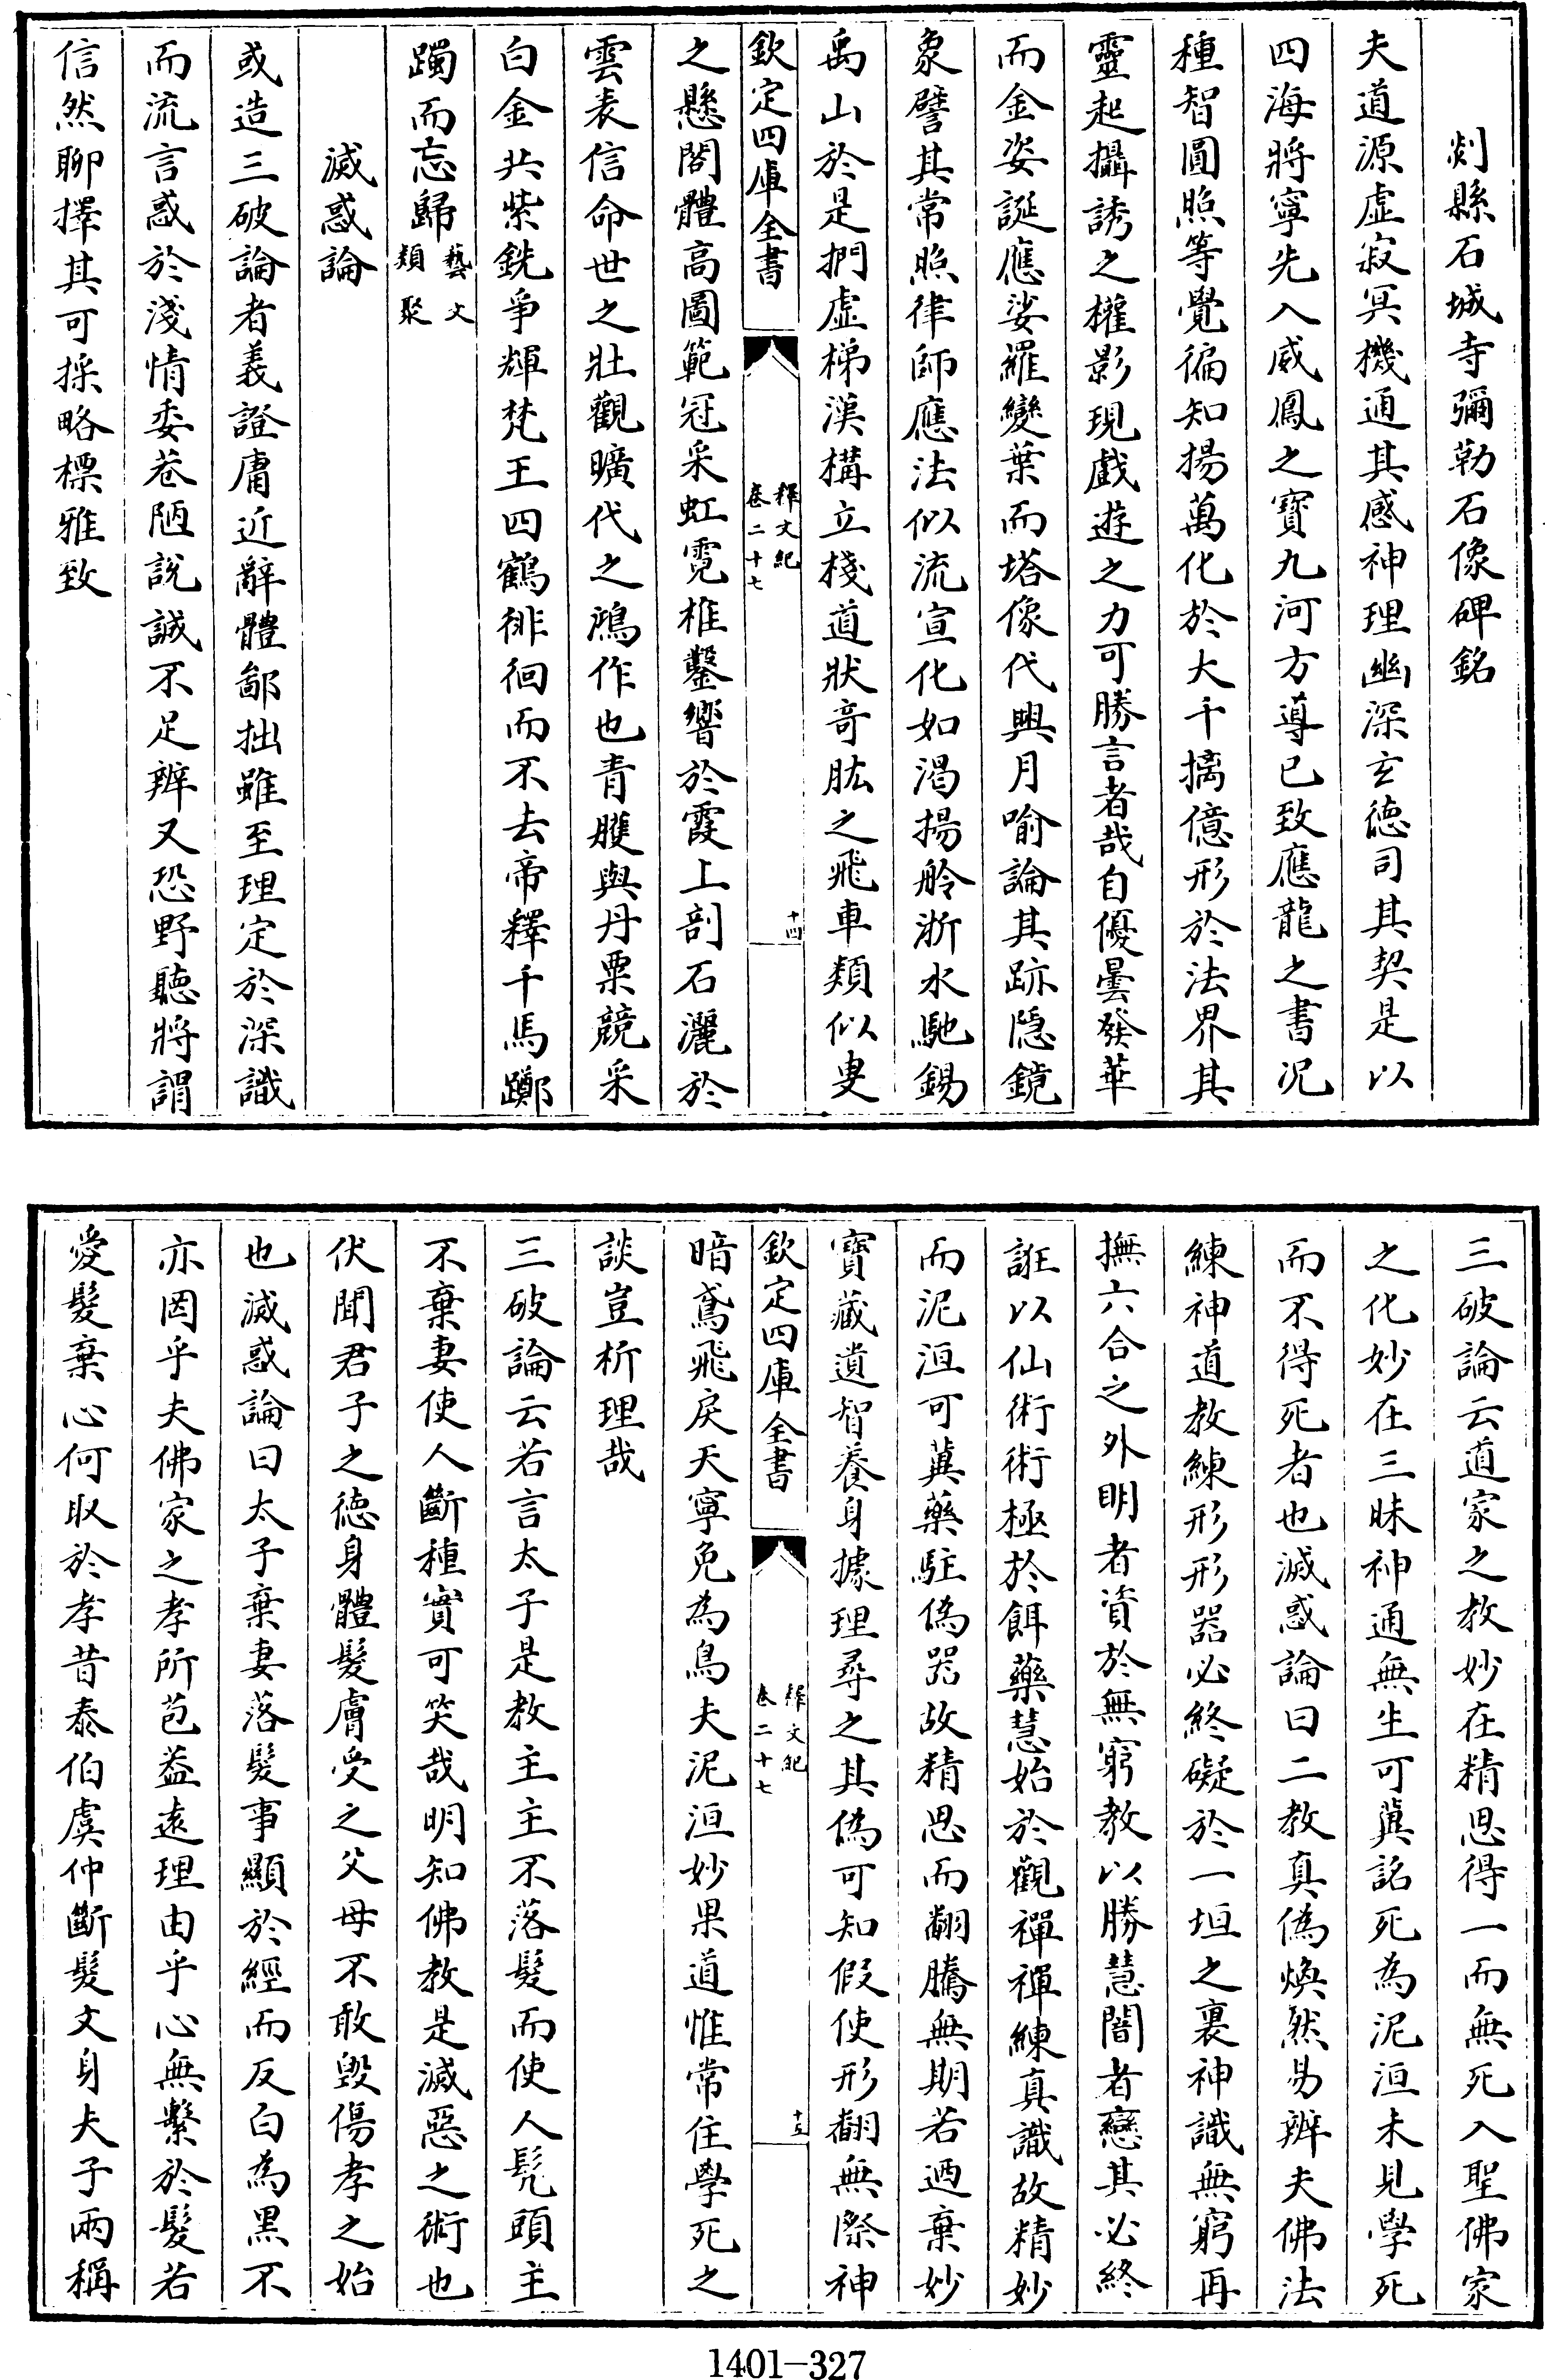 剡縣石城寺彌勒石像碑銘
夫道源虛寂冥機通其感神理幽深玄德司其契是以
四海將寧先入威鳳之寶九河方導已致應龍之書况
種智圓照等覺徧知揚萬化於大千摛億形於法界其
靈起攝誘之權影現戲遊之力可勝言者哉自優曇發華
而金姿誕應娑羅變葉而塔像代興月喻論其跡隱鏡
象譬其常照律師應法似流宣化如渴揚舲浙水馳錫
禹山於是捫虛梯漢構立棧道狀奇肱之飛車類似叟
欽定四庫全書
釋文紀
卷二十七
十四
之懸閣體高圖範冠采虹霓椎鑿響於霞上剖石灑於
雲表信命世之壯觀曠代之鴻作也青雘與丹粟競采
白金共紫銑爭輝梵王四鶴徘徊而不去帝釋千馬躑
躅而忘歸藝文類聚
滅惑論
或造三破論者義證庸近辭體鄙拙雖至理定於深識
而流言惑於淺情委巷陋說誠不足辨又恐野聽將謂
信然聊擇其可採略標雅致
三破論云道家之教妙在精思得一而無死入聖佛家
之化妙在三昧神通無生可冀詺死為泥洹未見學死
而不得死者也滅惑論曰二教真偽煥然易辨夫佛法
練神道教練形形器必終礙於一垣之裏神識無窮再
撫六合之外明者資於無窮教以勝慧闇者戀其必終
誑以仙術術極於餌藥慧始於觀禪禪練真識故精妙
而泥洹可冀藥駐偽器故精思而翻騰無期若迺棄妙
寶藏遺智養身據理尋之其偽可知假使形翻無際神
欽定四庫全書
釋文紀
卷二十七
十五
暗鳶飛戾天寧免為鳥夫泥洹妙果道惟常住學死之
談豈析理哉
三破論云若言太子是教主主不落髮而使人髡頭主
不棄妻使人斷種實可笑哉明知佛教是滅惡之術也
伏聞君子之德身體髮膚受之父母不敢毀傷孝之始
也滅惑論曰太子棄妻落髮事顯於經而反白為黑不
亦罔乎夫佛家之孝所苞葢遠理由乎心無繫於髮若
愛髮棄心何取於孝昔泰伯虞仲斷髮文身夫子兩稱
1401-327